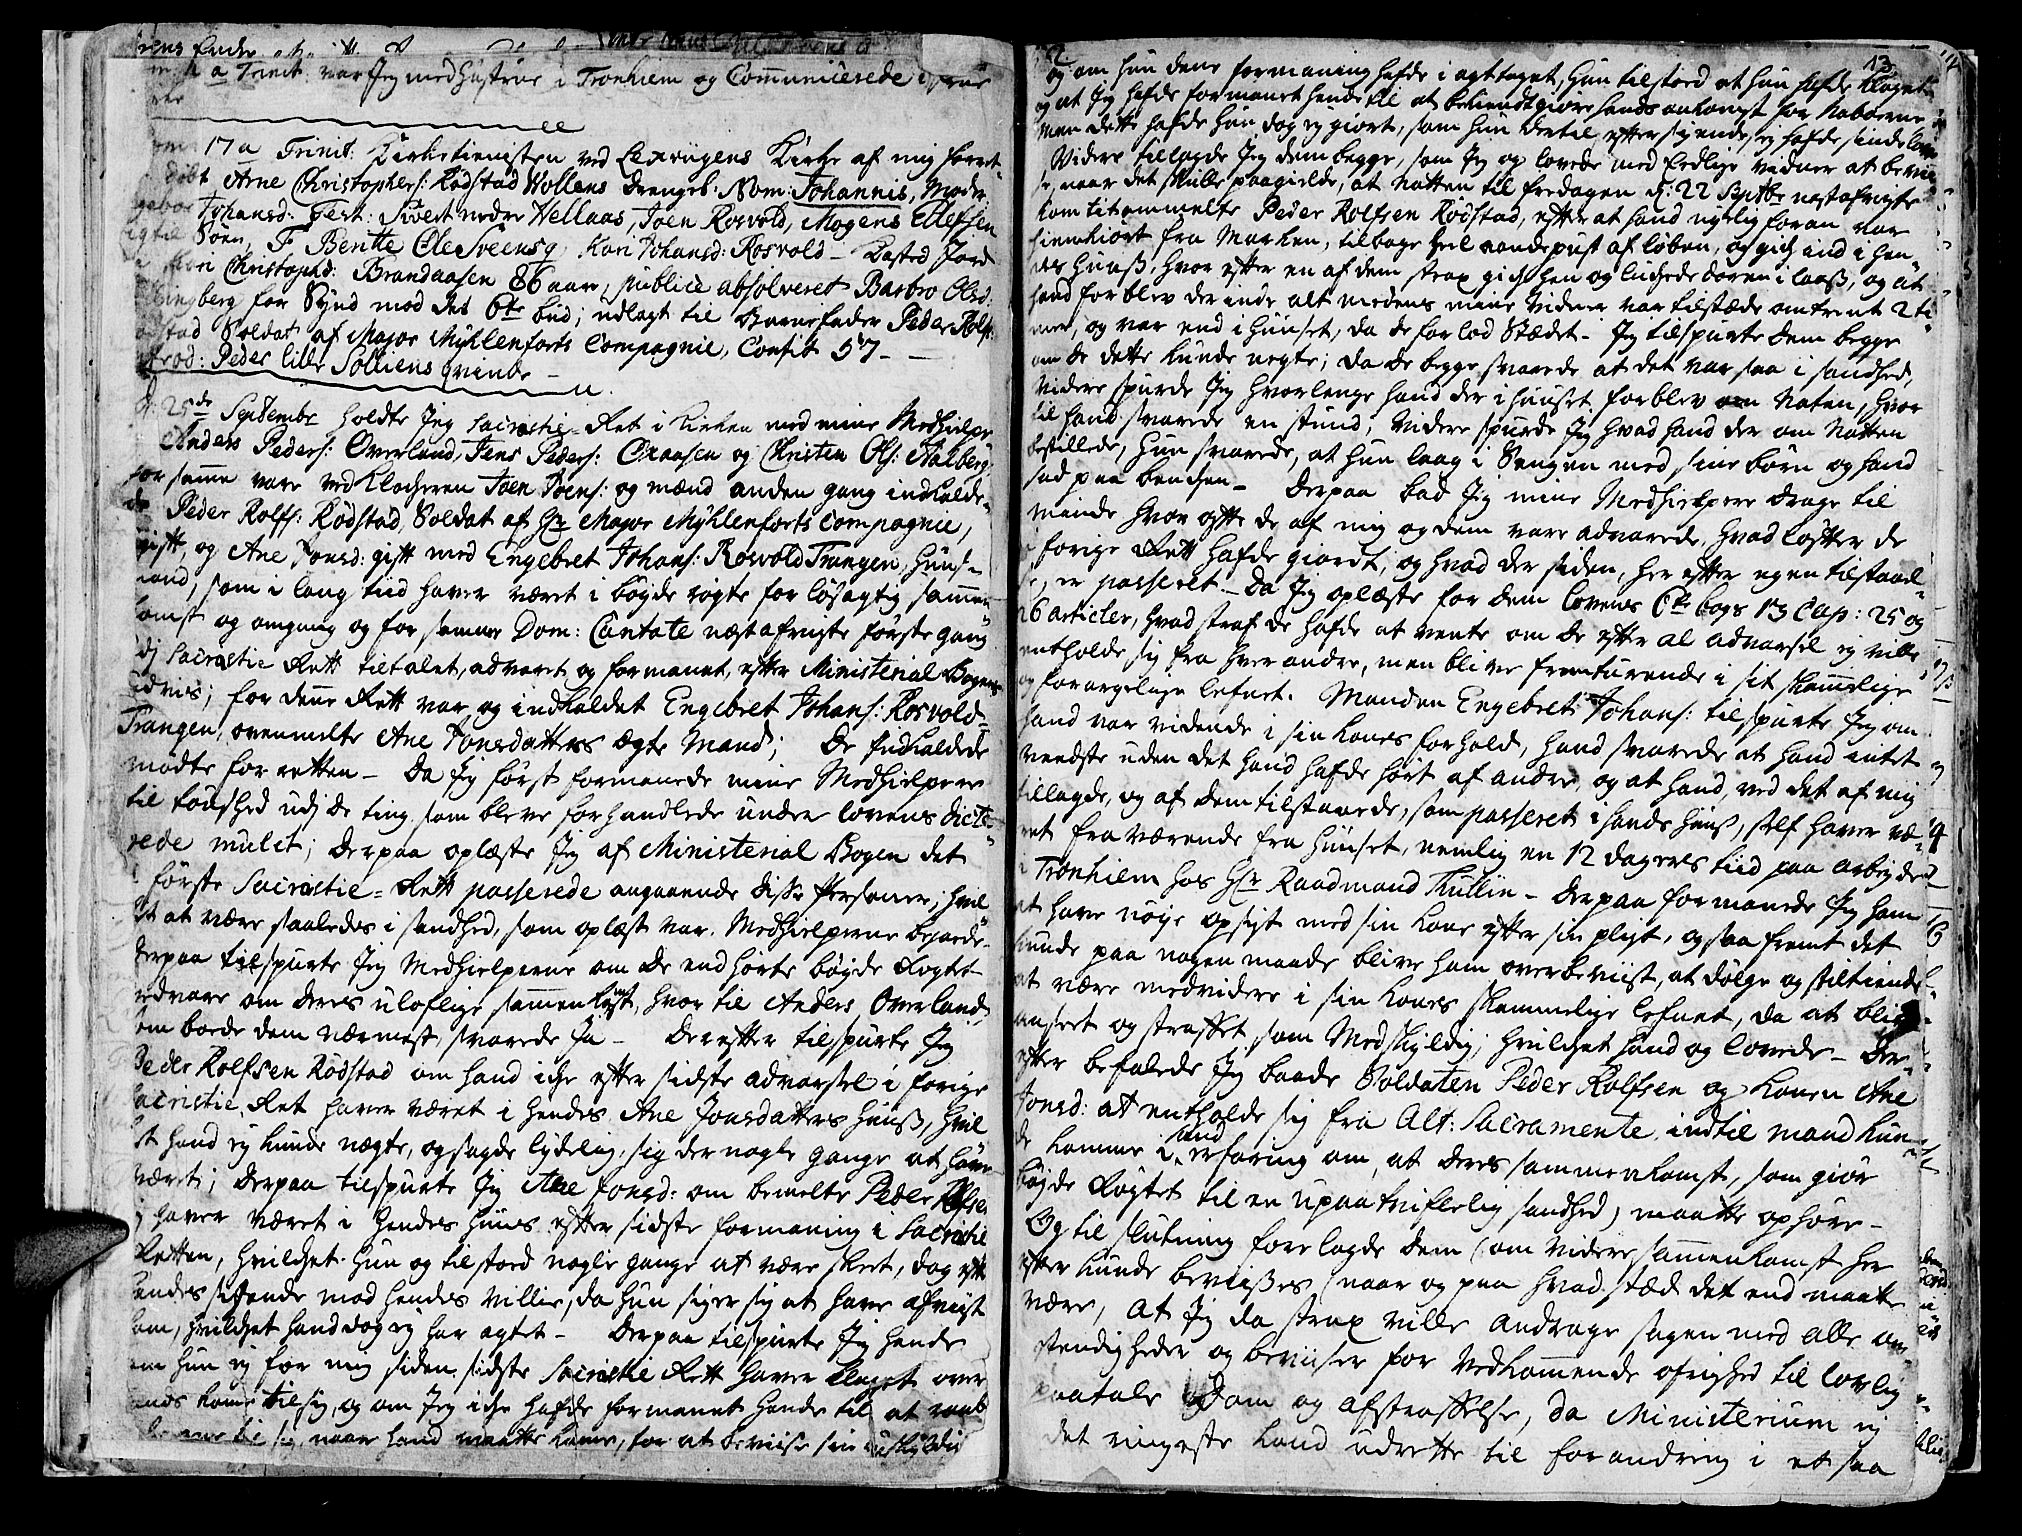 a Trinit: var Jeg med Hustrue i Tronhiem og Communicerede i
17 a Trinit: Kirketienisten ved Lexvigens Kirke af mig forret-
døbt Arne Christophers: Rødstad Wollens drengeb: Nom: Johannis, Moder
Johansd: Test: Sivert nedre Hellaas, Joen Rosvold, Mogens Ellefsen
Søen, F Bentte Ole Sveensq Kari Johansd: Rosvold - Kasted Jord
Christophd: Brandaasen 86 aar, publice absolveret Barbro Olsd:
berg for Synd mod det 6te bud; udlagt til Barnefader Peder Rolfs:
stad Soldat af Major Mÿhlenforts Compagnie, Confit 57 -
trod: Peder lille Solliens qvinde -
d: 25de Septembr holdte Jeg Sacristie-Ret i Kirken med mine Medhielper
Anders Peders: Overland, Jens Peders: Oxaasen og Christen Ols: Aalberg
for samme vare ved Klocheren Joen Joens: og mænd anden gang indkalde-
de Peder Rolfs: Rødstad, Soldat af Hr Major Mÿhlenforts Compagnie,
gift, og Ane Jonsd: gift med Engebret Johans: Rosvold Trangen, Huus-
mand, som i lang tiid haver været i bøyde røgte for løsagtig sammen-
komst og omgang og for samme Dom: Cantate næst afvigte første gang
udj Sacristie Rett tiltalet, advaret og formanet, efter Ministerial Bogens
udviis; for denne Rett var og indkaldet Engebret Johans: Rosvold-
Trangen, ovenmelte Ane Jonsdatters ægte Mand; De Indkaldede
mødte for retten - Da Jeg først formanede mine Medhielpere
til taushed udj de ting som bleve forhandlede under lovens dicte-
rede mulct; Derpaa oplæste Jeg af Ministerial Bogen det
første Sacristie-Rett passerede angaaende disse Personer; hvil-
ket at være saaledes i sandhed, som oplæst var, Medhielperne bejaede.
Derpaa tilspurte Jeg Medhielperne om de end hørte bøyde Rogtet
vedvare om deres uloflige sammenkomst, hvor til Anders Overland,
som boede dem nærmest, svarede Ja - Derefter tilspurte Jeg
Peder Rolfsen Rødstad om hand iche efter sidste advarsel i forige
Sacristie Ret haver været i hendes Ane Jonsdatters huuß, hvil-
ket hand ej kunde nægte, og sagde lydelig, sig der nogle gange at have
været; Derpaa tilspurte Jeg Ane Jonsd: om bemelte Peder Rolfsen
ej haver været i hendes huus efter sidste formaning i Sacristie
Retten, hvilchet hun og tilstoed nogle gange at være skeet, dog efter
hendes sigende mod hendes villie, da hun siger sig at have afviist
ham, hvilchet hand dog ej har agtet - Derpaa tilspurte Jeg hende
om hun ej for mig siden sidste Sacristie Rett haver klaget over
hands komme til sig, og om Jeg iche hafde formanet hende til at raabe
til sig, naar hand maatte komme, for at beviise sin uskyldig
13
og om hun denne formaning hafde i agt taget, Hun tilstoed at hun hafde klaget
og at Jeg hafde formanet hende til at bekiendtgiøre hands ankomst for Naboerne
men dette hafde hun dog ej giort, som hun dertil efter sigende, ej hafde sinde
Videre tillagde Jeg dem begge, som Jeg og lovede med Eedlige vidner at bevii-
se, naar det skulle paagielde, at Natten til fredagen d: 22 Septbr næstafvigte
kom titommelte Peder Rolfsen Rødstad, efter at hand nylig foran var
hiemkiort fra Marken, tilbage heel aandepust af løben, og gich ind i hen-
des huuß, hvor efter en af dem strax gich hen og luckede døren i laaß, og at
hand forblev der inde alt medens mine vidner var tilstæde omtrent 2 ti-
mer, og var end i huuset, da de forlod Stædet - Jeg tilspurte dem begge
om de dette kunde negte; da de begge svarede at det var saa i sandhed,
Videre spurde Jeg hvorlenge hand der i huuset forblev om Naten, hvor
til hand svarede en stund, videre spurde Jeg hvad hand der om Natten
bestillede, hun svarede, at hun laag i Sengen med sine børn og hand
sad paa benchen - Derpaa bad Jeg mine Medhielpere drage til
minde hvor ofte de af mig og dem vare advarede, hvad løfter de
forige Rett hafde giordt, og hvad der siden, her efter egen tilstaael-
se, er passeret - Da Jeg oplæste for dem Lovens 6te bogs 13 Cap: 25 og
26 articler, hvad straf de hafde at vente om de efter al advarsel ej ville
entholde sig fra hver andre, men blive fremturende i sit skammelige
og forargelige lefnet. Manden Engebret Johans: tilspurte Jeg om
hand var vidende i sin kones forhold, hand svarede at hand intet
veedste uden det hand hafde hørt af andre, og at hand, ved det af mig
tillagde, og af dem tilstaaede, som passeret i hands huuß, self haver væ-
ret fraværende fra huuset, nemlig en 12 dagers tiid paa arbejde
i Tronhiem hos Hr Raadmand Thullin - Derpaa formanede Jeg ham
at have nøye opsigt med sin kone efter sin pligt, og saafremt det
kunde paa nogen maade blive ham overbeviist, at dølge og stiltiende
at være medvidere i sin kones skammelige lefnet, da at blive
anseet og straffet som Medskyldig; hvilchet hand og lovede - Der-
efter befalede Jeg baade Soldaten Peder Rolfsen og konen Ane
Jonsd: at entholde sig fra Alt: Sacramente, indtil mand kun-
de komme i und erfaring om, at deres sammenkomst, som giør
bøyde Røgtet til en upaatvilelig sandhed, maatte ophøre -
Og til slutning forelagde dem (om videre sammenkomst her
efter kunde beviises) naar og paa hvad stæd det end maatte
være, at Jeg da strax ville andrage sagen med alle om-
stendigheder og beviiser for Vedkommende øfrighed til lovlig
paatale Dom og afstraffelse, da Ministerium ej
det ringeste kand udrette til forandring i et saa